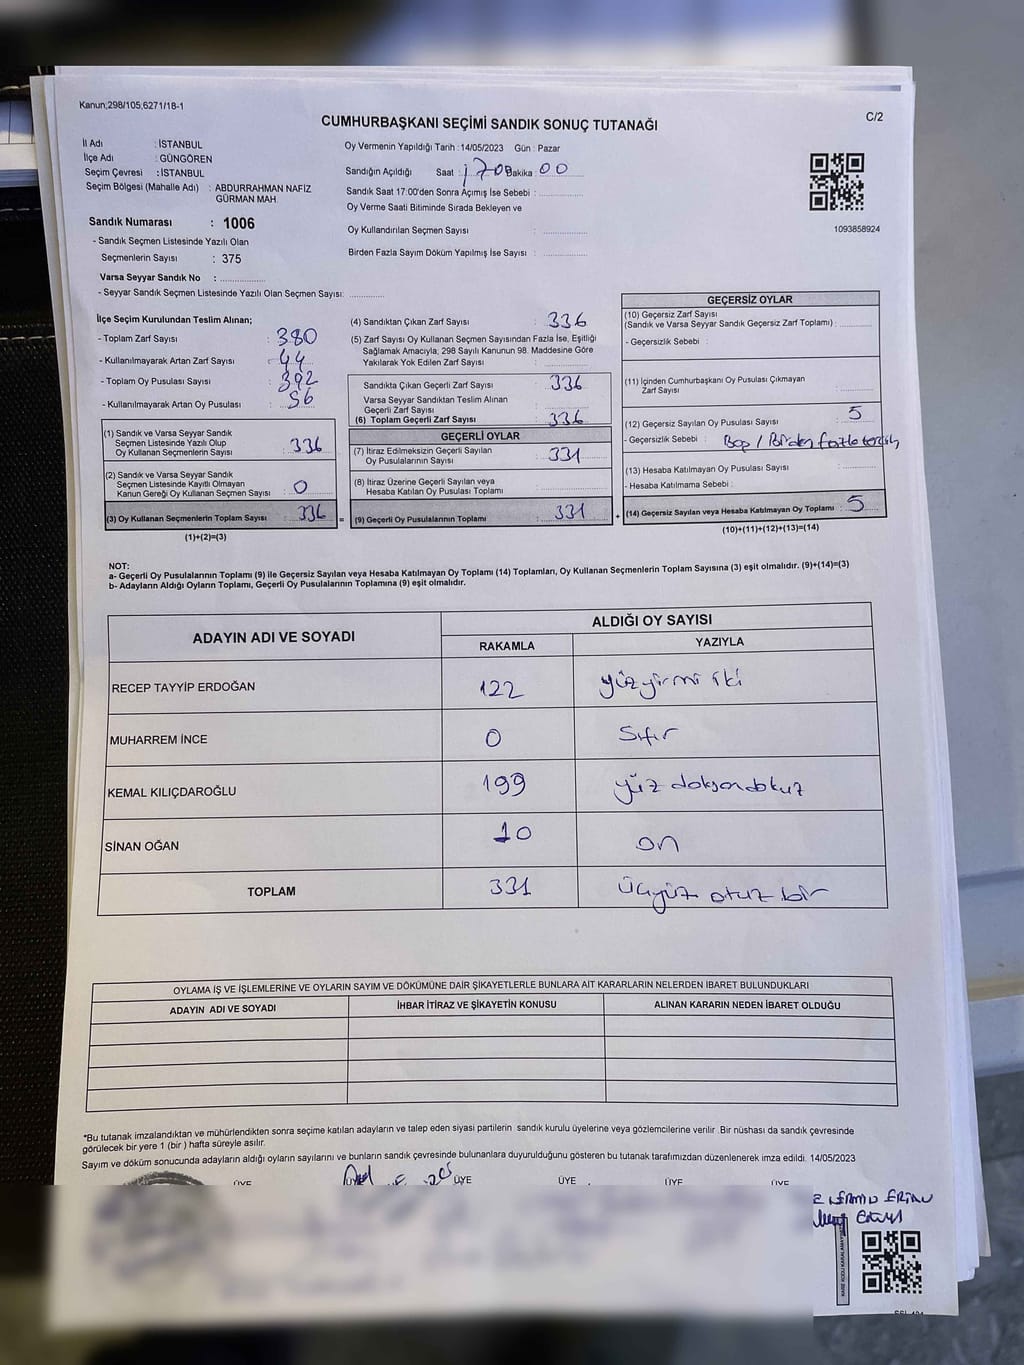 Kanun;298/105,6271/18-1
C/2
CUMHURBAŞKANI SEÇİMİ SANDIK SONUÇ TUTANAĞI
İl Adı : İSTANBUL
İlçe Adı : GÜNGÖREN
Seçim Çevresi : İSTANBUL
Seçim Bölgesi (Mahalle Adı) : ABDURRAHMAN NAFİZ
GÜRMAN MAH.
Sandık Numarası : 1006
- Sandık Seçmen Listesinde Yazılı Olan
Seçmenlerin Sayısı : 375
Varsa Seyyar Sandık No : ..............
- Seyyar Sandık Seçmen Listesinde Yazılı Olan Seçmen Sayısı: ............
Oy Vermenin Yapıldığı Tarih : 14/05/2023 Gün : Pazar
Sandığın Açıldığı Saat : 17 00 Dakika : 00
Sandık Saat 17:00'den Sonra Açımış İse Sebebi : ..............
Oy Verme Saati Bitiminde Sırada Bekleyen ve
Oy Kullandırılan Seçmen Sayısı : ..............
Birden Fazla Sayım Döküm Yapılmış İse Sayısı : ..............
1093858924
İlçe Seçim Kurulundan Teslim Alınan;
- Toplam Zarf Sayısı : 380
- Kullanılmayarak Artan Zarf Sayısı : 44
- Toplam Oy Pusulası Sayısı : 392
- Kullanılmayarak Artan Oy Pusulası : 56
(1) Sandık ve Varsa Seyyar Sandık
Seçmen Listesinde Yazılı Olup
Oy Kullanan Seçmenlerin Sayısı : 336
(2) Sandık ve Varsa Seyyar Sandık
Seçmen Listesinde Kayıtlı Olmayan
Kanun Gereği Oy Kullanan Seçmen Sayısı : 0
(3) Oy Kullanan Seçmenlerin Toplam Sayısı : 336
(1)+(2)=(3)
=
(4) Sandıktan Çıkan Zarf Sayısı : 336
(5) Zarf Sayısı Oy Kullanan Seçmen Sayısından Fazla İse, Eşitliği
Sağlamak Amacıyla; 298 Sayılı Kanunun 98. Maddesine Göre
Yakılarak Yok Edilen Zarf Sayısı : ..............
Sandıkta Çıkan Geçerli Zarf Sayısı : 336
Varsa Seyyar Sandıktan Teslim Alınan
Geçerli Zarf Sayısı : ..............
(6) Toplam Geçerli Zarf Sayısı : 336
GEÇERLİ OYLAR
(7) İtiraz Edilmeksizin Geçerli Sayılan
Oy Pusulalarının Sayısı : 331
(8) İtiraz Üzerine Geçerli Sayılan veya
Hesaba Katılan Oy Pusulası Toplamı : ..............
(9) Geçerli Oy Pusulalarının Toplamı : 331
+
GEÇERSİZ OYLAR
(10) Geçersiz Zarf Sayısı
(Sandık ve Varsa Seyyar Sandık Geçersiz Zarf Toplamı) : ..........
- Geçersizlik Sebebi :
(11) İçinden Cumhurbaşkanı Oy Pusulası Çıkmayan
Zarf Sayısı : ..........
(12) Geçersiz Sayılan Oy Pusulası Sayısı : 5
- Geçersizlik Sebebi : Boş / Birden fazla tercih
(13) Hesaba Katılmayan Oy Pusulası Sayısı : ..........
- Hesaba Katılmama Sebebi :
(14) Geçersiz Sayılan veya Hesaba Katılmayan Oy Toplamı : 5
(10)+(11)+(12)+(13)=(14)
NOT:
a- Geçerli Oy Pusulalarının Toplamı (9) ile Geçersiz Sayılan veya Hesaba Katılmayan Oy Toplamı (14) Toplamları, Oy Kullanan Seçmenlerin Toplam Sayısına (3) eşit olmalıdır. (9)+(14)=(3)
b- Adayların Aldığı Oyların Toplamı, Geçerli Oy Pusulalarının Toplamına (9) eşit olmalıdır.
ADAYIN ADI VE SOYADI
ALDIĞI OY SAYISI
RAKAMLA YAZIYLA
RECEP TAYYİP ERDOĞAN 122 yüzyirmi iki
MUHARREM İNCE 0 Sıfır
KEMAL KILIÇDAROĞLU 199 yüz doksandokuz
SİNAN OĞAN 10 on
TOPLAM 331 üçyüz otuz bir
OYLAMA İŞ VE İŞLEMLERİNE VE OYLARIN SAYIM VE DÖKÜMÜNE DAİR ŞİKAYETLERLE BUNLARA AİT KARARLARIN NELERDEN İBARET BULUNDUKLARI
ADAYIN ADI VE SOYADI İHBAR İTİRAZ VE ŞİKAYETİN KONUSU ALINAN KARARIN NEDEN İBARET OLDUĞU
*Bu tutanak imzalandıktan ve mühürlendikten sonra seçime katılan adayların ve talep eden siyasi partilerin sandık kurulu üyelerine veya gözlemcilerine verilir .Bir nüshası da sandık çevresinde
görülecek bir yere 1 (bir ) hafta süreyle asılır.
Sayım ve döküm sonucunda adayların aldığı oyların sayılarını ve bunların sandık çevresinde bulunanlara duyurulduğunu gösteren bu tutanak tarafımızdan düzenlenerek imza edildi. 14/05/2023
ÜYE ÜYE ÜYE ÜYE ÜYE